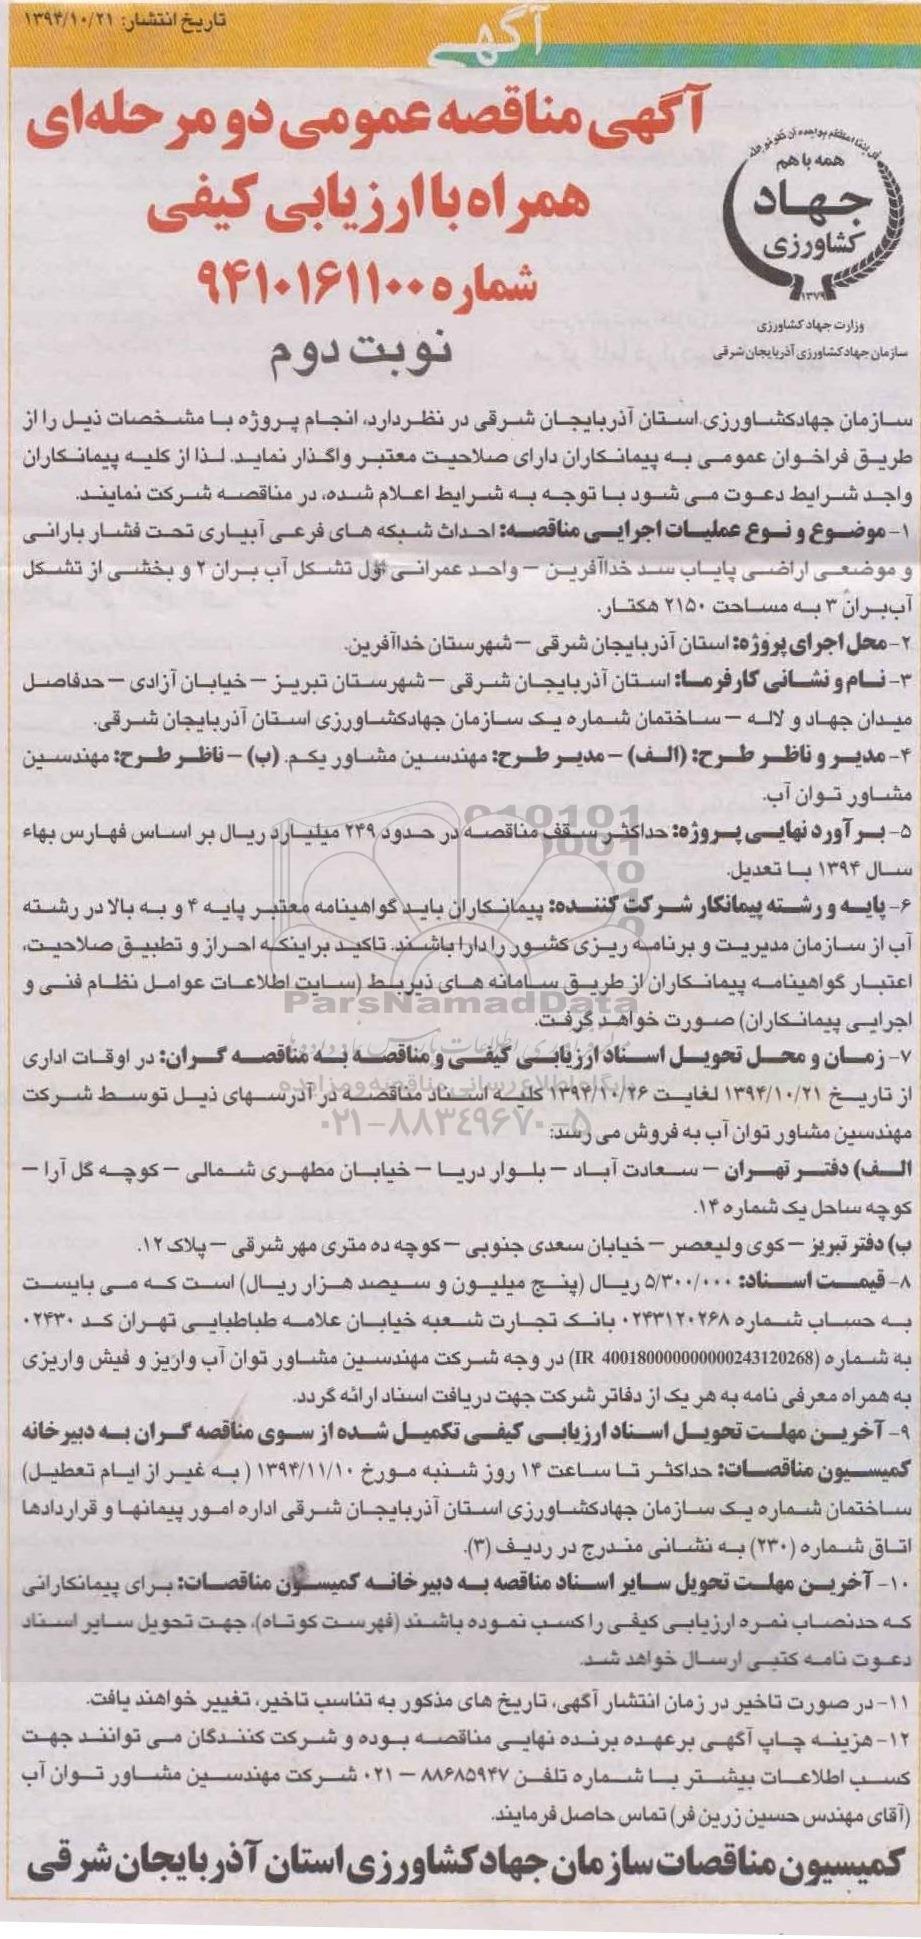 تاریخ انتشار: ۱۳۹۴/۱۰/۲۱
آگهی
آگهی مناقصه عمومی دو مرحله‌ای
همراه با ارزیابی کیفی
شماره ۹۴۱۰۱۶۱۱۰۰
نوبت دوم
همه با هم
جهاد
کشاورزی
۱۳۷۹
وزارت جهاد کشاورزی
سازمان جهاد کشاورزی آذربایجان شرقی
سازمان جهادکشاورزی استان آذربایجان شرقی در نظر دارد، انجام پروژه با مشخصات ذیل را از
طریق فراخوان عمومی به پیمانکاران دارای صلاحیت معتبر واگذار نماید. لذا از کلیه پیمانکاران
واجد شرایط دعوت می شود با توجه به شرایط اعلام شده، در مناقصه شرکت نمایند.
۱- موضوع و نوع عملیات اجرایی مناقصه: احداث شبکه های فرعی آبیاری تحت فشار بارانی
و موضعی اراضی پایاب سد خداآفرین – واحد عمرانی اول تشکل آب بران ۲ و بخشی از تشکل
آب‌بران ۳ به مساحت ۲۱۵۰ هکتار.
۲- محل اجرای پروژه: استان آذربایجان شرقی – شهرستان خداآفرین.
۳- نام و نشانی کارفرما: استان آذربایجان شرقی – شهرستان تبریز – خیابان آزادی – حدفاصل
میدان جهاد و لاله – ساختمان شماره یک سازمان جهادکشاورزی استان آذربایجان شرقی.
۴- مدیر و ناظر طرح: (الف) – مدیر طرح: مهندسین مشاور یکم. (ب) – ناظر طرح: مهندسین
مشاور توان آب.
۵- برآورد نهایی پروژه: حداکثر سقف مناقصه در حدود ۲۴۹ میلیارد ریال بر اساس فهارس بهاء
سال ۱۳۹۴ با تعدیل.
۶- پایه و رشته پیمانکار شرکت کننده: پیمانکاران باید گواهینامه معتبر پایه ۴ و به بالا در رشته
آب از سازمان مدیریت و برنامه ریزی کشور را دارا باشند. تاکید بر اینکه احراز و تطبیق صلاحیت،
اعتبار گواهینامه پیمانکاران از طریق سامانه های ذیربط (سایت اطلاعات عوامل نظام فنی و
اجرایی پیمانکاران) صورت خواهد گرفت.
ParsNamadData
۷- زمان و محل تحویل اسناد ارزیابی کیفی و مناقصه به مناقصه گران: در اوقات اداری
از تاریخ ۱۳۹۴/۱۰/۲۱ لغایت ۱۳۹۴/۱۰/۲۶ کلیه اسناد مناقصه در آدرسهای ذیل توسط شرکت
پایگاه اطلاع رسانی مناقصه و مزایده
مهندسین مشاور توان آب به فروش می رسد:
۰۲۱-۸۸۳۴۹۶۷۰-۵
الف) دفتر تهران – سعادت آباد – بلوار دریا – خیابان مطهری شمالی – کوچه گل آرا –
کوچه ساحل یک شماره ۱۴.
ب) دفتر تبریز – کوی ولیعصر – خیابان سعدی جنوبی – کوچه ده متری مهر شرقی – پلاک ۱۲.
۸- قیمت اسناد: ۵/۳۰۰/۰۰۰ ریال (پنج میلیون و سیصد هزار ریال) است که می بایست
به حساب شماره ۰۲۴۳۱۲۰۲۶۸ بانک تجارت شعبه خیابان علامه طباطبایی تهران کد ۰۲۴۳۰
به شماره (IR 400180000000000243120268) در وجه شرکت مهندسین مشاور توان آب واریز و فیش واریزی
به همراه معرفی نامه به هر یک از دفاتر شرکت جهت دریافت اسناد ارائه گردد.
۹- آخرین مهلت تحویل اسناد ارزیابی کیفی تکمیل شده از سوی مناقصه گران به دبیرخانه
کمیسیون مناقصات: حداکثر تا ساعت ۱۴ روز شنبه مورخ ۱۳۹۴/۱۱/۱۰ (به غیر از ایام تعطیل)
ساختمان شماره یک سازمان جهادکشاورزی استان آذربایجان شرقی اداره امور پیمانها و قراردادها
اتاق شماره (۲۳۰) به نشانی مندرج در ردیف (۳).
۱۰- آخرین مهلت تحویل سایر اسناد مناقصه به دبیرخانه کمیسیون مناقصات: برای پیمانکارانی
که حدنصاب نمره ارزیابی کیفی را کسب نموده باشند (فهرست کوتاه)، جهت تحویل سایر اسناد
دعوت نامه کتبی ارسال خواهد شد.
۱۱- در صورت تاخیر در زمان انتشار آگهی، تاریخ های مذکور به تناسب تاخیر، تغییر خواهند یافت.
۱۲- هزینه چاپ آگهی برعهده برنده نهایی مناقصه بوده و شرکت کنندگان می توانند جهت
کسب اطلاعات بیشتر با شماره تلفن ۸۸۶۸۵۹۴۷ – ۰۲۱ شرکت مهندسین مشاور توان آب
(آقای مهندس حسین زرین فر) تماس حاصل فرمایند.
کمیسیون مناقصات سازمان جهاد کشاورزی استان آذربایجان شرقی